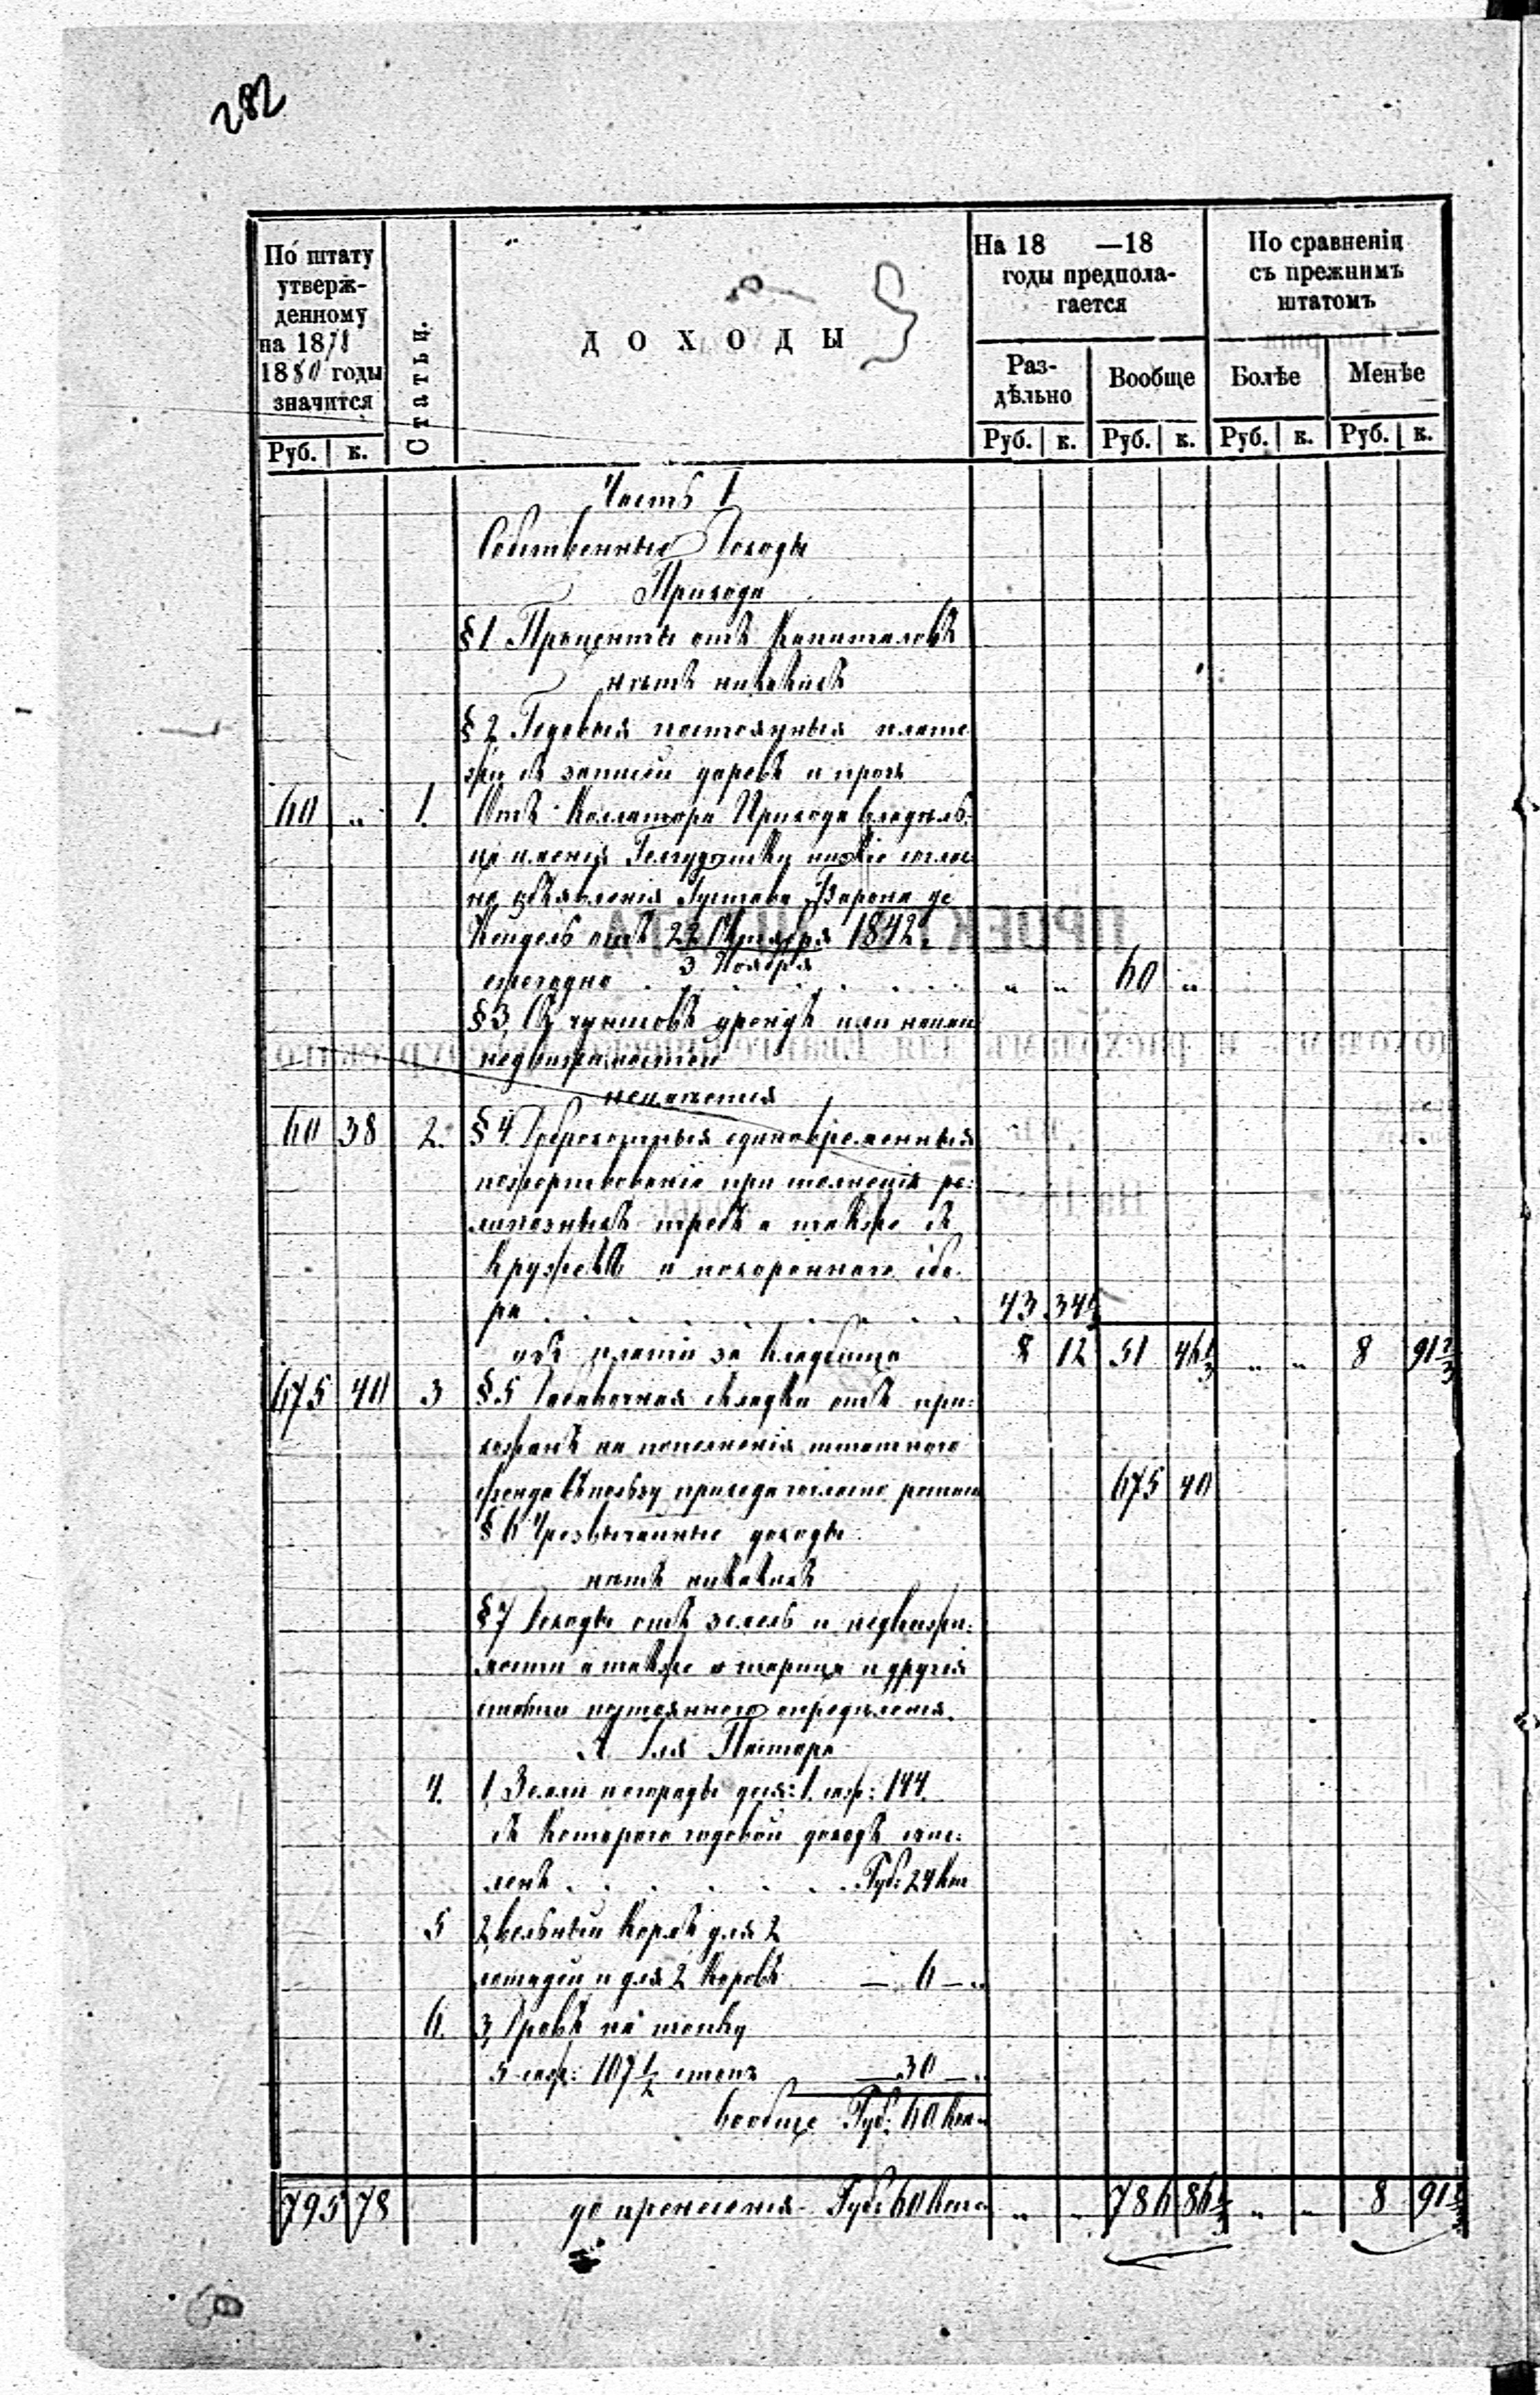 282
По штату утверж-
денному
на 1878
1880 годы
значится
Руб. к.
Статьи.
ДОХОДЫ
На 18 —18
годы предпола-
гается
Раз-
дѣльно
Руб. к.
Вообще
Руб. к.
По сравненію
съ прежнимъ
штатомъ
Болѣе
Руб. к.
Менѣе
Руб. к.
Часть I
Собственные Доходы
Прихода
§ 1 Проценты отъ Капиталовъ
нѣтъ никакихъ
§ 2 Годовыя постоянныя плате
жи съ записей даровъ и проч
60 „ 1. Отъ Коллатора Прихода владѣль-
ца имѣнія соглас
но объявленія Густава Барона де
отъ 22 Октября 1842 г.
3 Ноября
ежегодно . . . . . . . . „ „ 60 „
§ 3 Съ чиншовъ арендъ или
недвижимостей
неимѣется
60 38 2. § 4 Доброхотныя единовременныя
пожертвованія при ре-
лигіозныхъ требъ а также съ
кружекъ и похороннаго сбо-
ра . . . . . . . . 43 34⅓
платы за кладбища 8 12 51 46⅓ „ „ 8 91⅔
675 40 3 § 5 Добавочная складка отъ при-
хожанъ на пополненія штатного
фонда въ пользу прихода согласно 675 40
§ 6 Чрезвычайные доходы
нѣтъ никакихъ
§ 7 Доходы отъ земель и недвижи-
мости а также и другія
статьи постояннаго опредѣленія.
А. Для Пастора
4. 1, Земли и огороды деся: 1. саж: 144.
съ котораго годовой доходъ исчи-
ленъ . . . . . . . Руб: 24 Коп
5 2, вольный кормъ для 2
лошадей и для 2 коровъ — 6 — „
6. 3, Дровъ на топку
5 саж: 107 ½ — 30 — „
вообще Руб: 60 Коп „
795 78 до пренесенія Руб: 60 Коп „ „ „ 786 86⅓ „ „ 8 91⅔